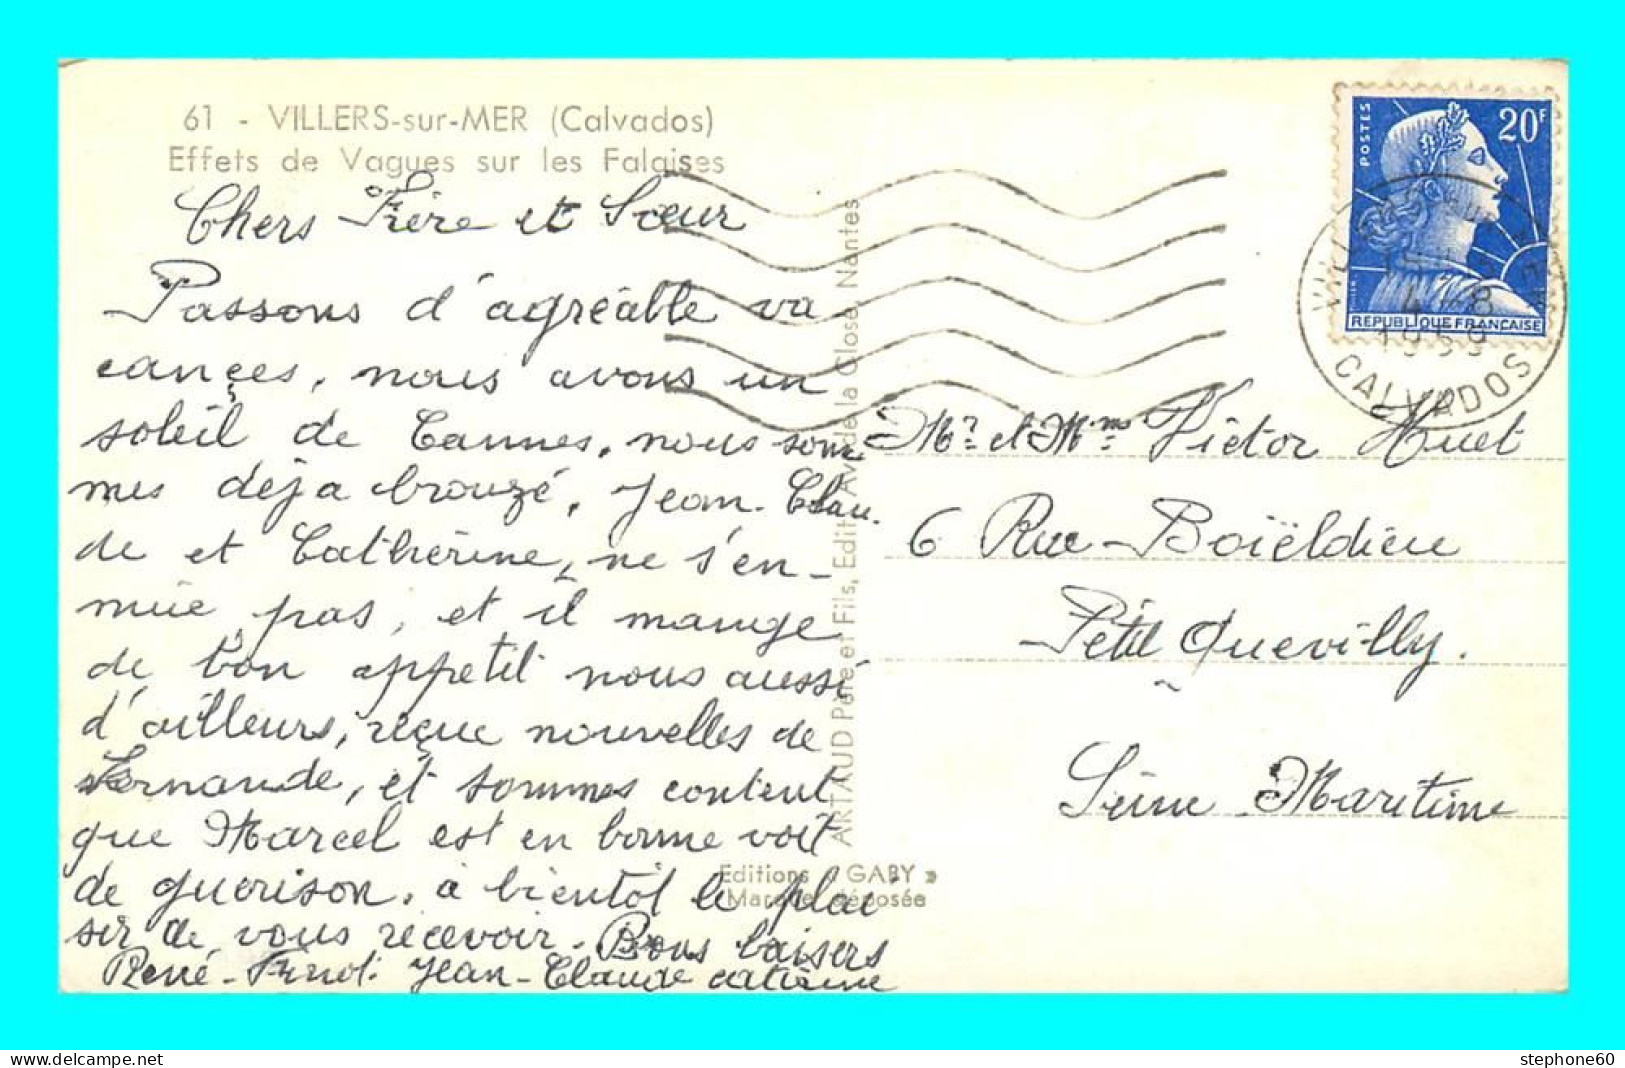 61 - VILLERS-sur-MER (Calvados)
Effets de Vagues sur les Falaises
Chers Frère et Sœur
Passons d'agréable va-
cançes, nous avons un
soleil de Cannes, nous som
mes déja bronzé, Jean-Clau.
de et Cathérine, ne s'en-
nuie pas, et il mange
de bon appetit nous aussi
d'ailleurs, reçue nouvelles de
Fernande, et sommes content
que Marcel est en bonne voit
de guerison, a bientôt le plai
sir de vous recevoir. Bons baisers
René - Jean-Claude
ARTAUD Père et Fils, Edit. Av. de la Close, Nantes
Editions « GABY »
Marque déposée
POSTES
20F
REPUBLIQUE FRANÇAISE
4 - 8
1959
CALVADOS
Mr et Mme Victor Huet
6 Rue Boïëldieu
Petit Quevilly.
Seine Maritime
stephone60